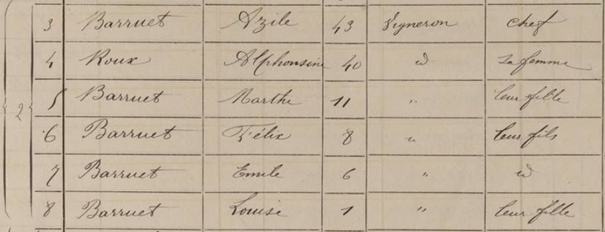 3 Barruet Azile 43 Vigneron chef
4 Roux Alphonsine 40 id sa femme
5 Barruet Marthe 11 " leur fille
2 6 Barruet Félix 8 " leur fils
7 Barruet Emile 6 " id
8 Barruet Louise 1 " leur fille